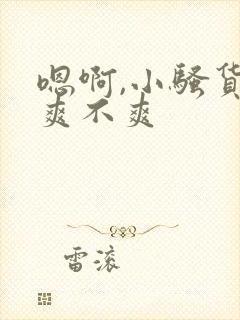 嗯啊,小骚货
爽不爽
雷滚